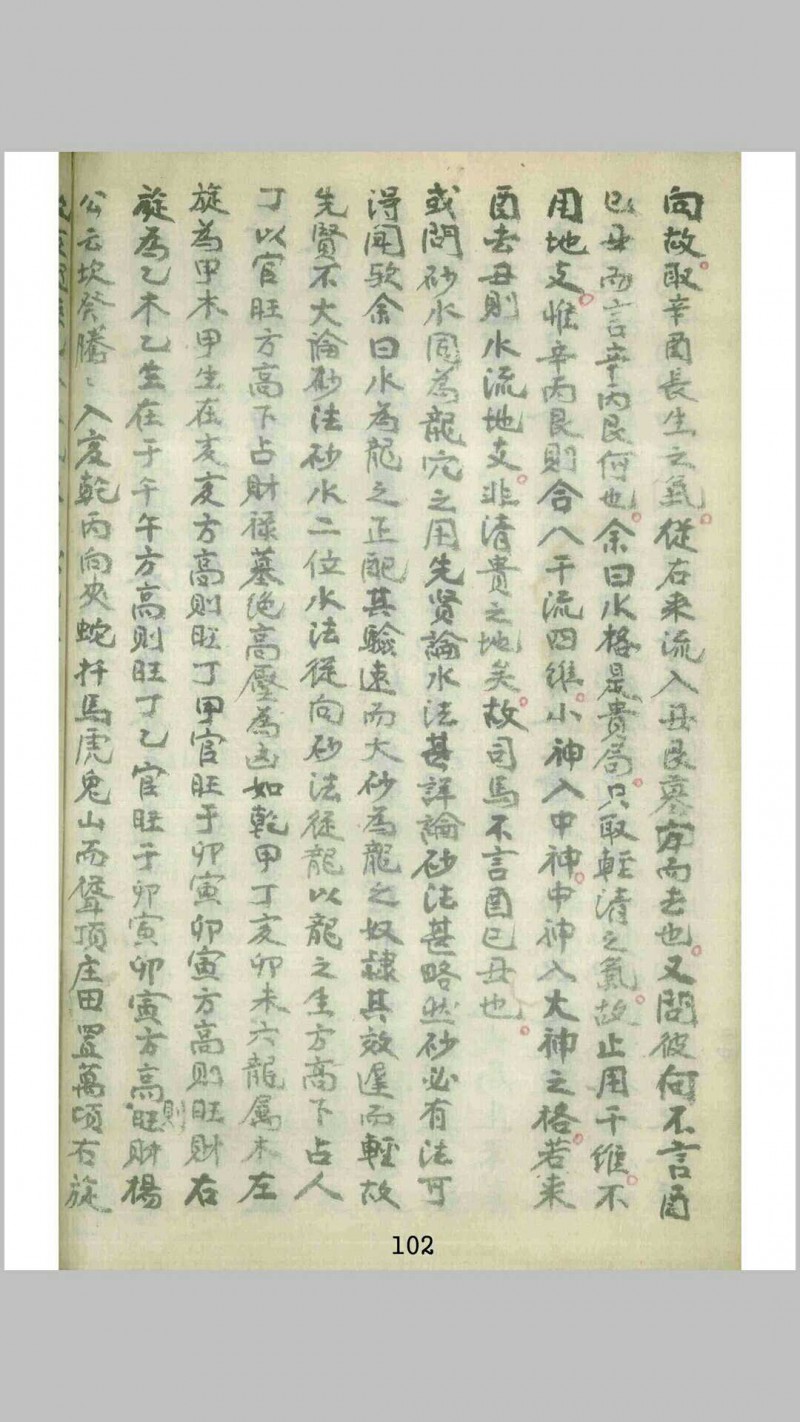 向故取辛酉長生之氣從右來流入丑艮墓方而去也又問彼何不言酉
巳丑而言辛丙艮何也余曰水格是貴局只取輕清之氣故止用干維不
用地支惟辛丙艮則合八干流四維小神入中神中神入大神之格若來
酉去丑則水流地支非清貴之地矣故司馬不言酉巳丑也
或問砂水固為龍穴之用先贤論水法甚詳論砂法甚略然砂必有法可
得聞欤余曰水為龍之正配其驗速而大砂為龍之奴隸其效遲而輕故
先賢不大論砂法砂水二位水法從向砂法從龍以龍之生方高下占人
丁以官旺方高下占財禄墓绝高壓為凶如乾甲丁亥卯未六龍属木左
旋為甲木甲生在亥亥方高則旺丁甲官旺于卯寅卯寅方高則旺財右
旋為乙木乙生在于午午方高則旺丁乙官旺于卯寅卯寅方高則旺財楊
公云坎癸騰〻入亥乾丙向夾蛇扦馬虎鬼山而聳頂庄田置萬頃右旋
102